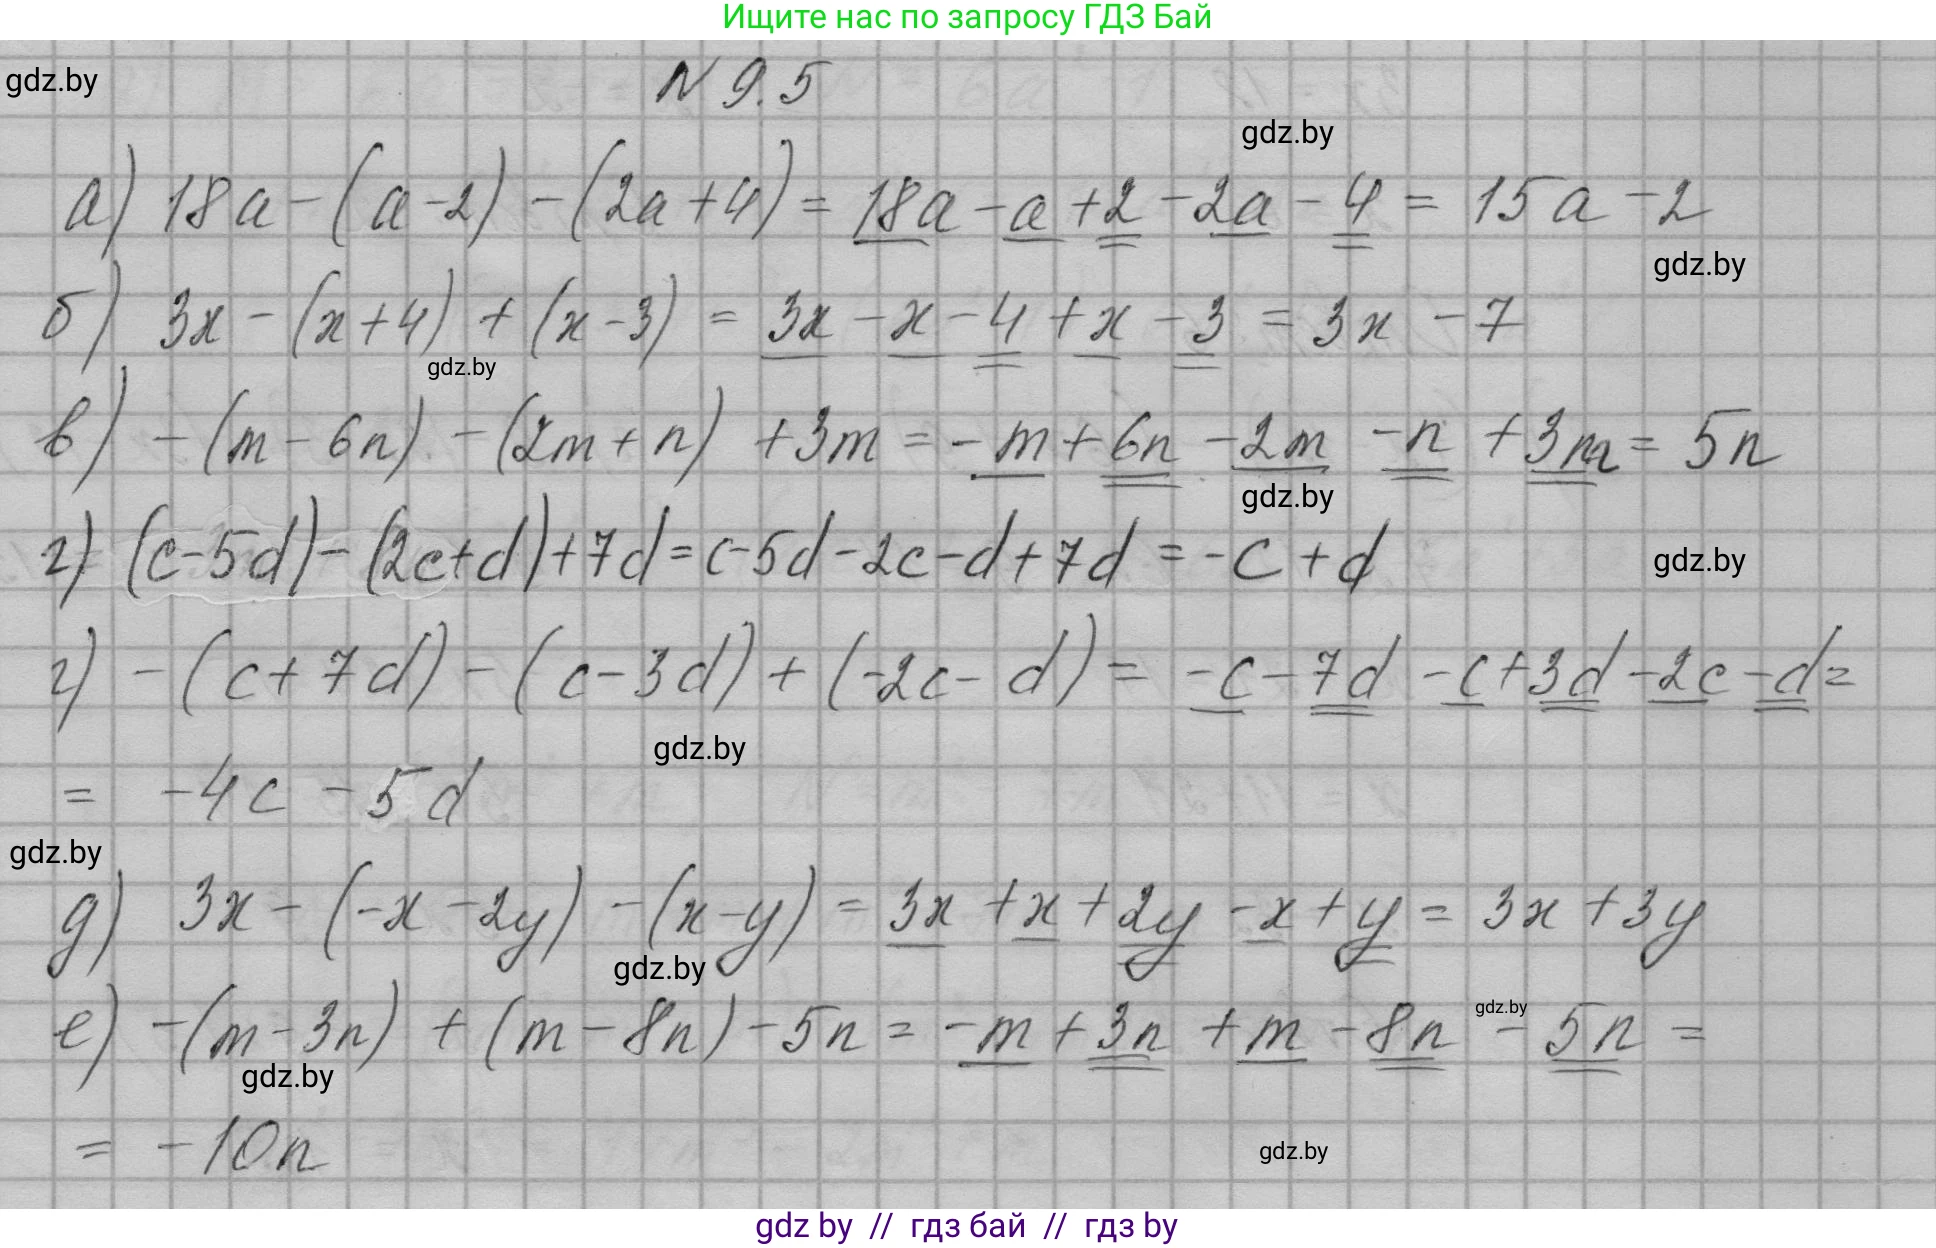 Ищите нас по запросу ГДЗ Бай
gdz.by
N 9.5
gdz.by
а) 18a - (a - 2) - (2a + 4) = 18a - a + 2 - 2a - 4 = 15a - 2
gdz.by
б) 3x - (x + 4) + (x - 3) = 3x - x - 4 + x - 3 = 3x - 7
gdz.by
в) - (m - 6n) - (2m + n) + 3m = - m + 6n - 2m - n + 3m = 5n
gdz.by
г) (c - 5d) - (2c + d) + 7d = c - 5d - 2c - d + 7d = - c + d
gdz.by
г) - (c + 7d) - (c - 3d) + (-2c - d) = - c - 7d - c + 3d - 2c - d =
gdz.by
= - 4c - 5d
gdz.by
д) 3x - (-x - 2y) - (x - y) = 3x + x + 2y - x + y = 3x + 3y
gdz.by
gdz.by
е) - (m - 3n) + (m - 8n) - 5n = - m + 3n + m - 8n - 5n =
gdz.by
= - 10n
gdz.by
gdz by // гдз бай // гдз by